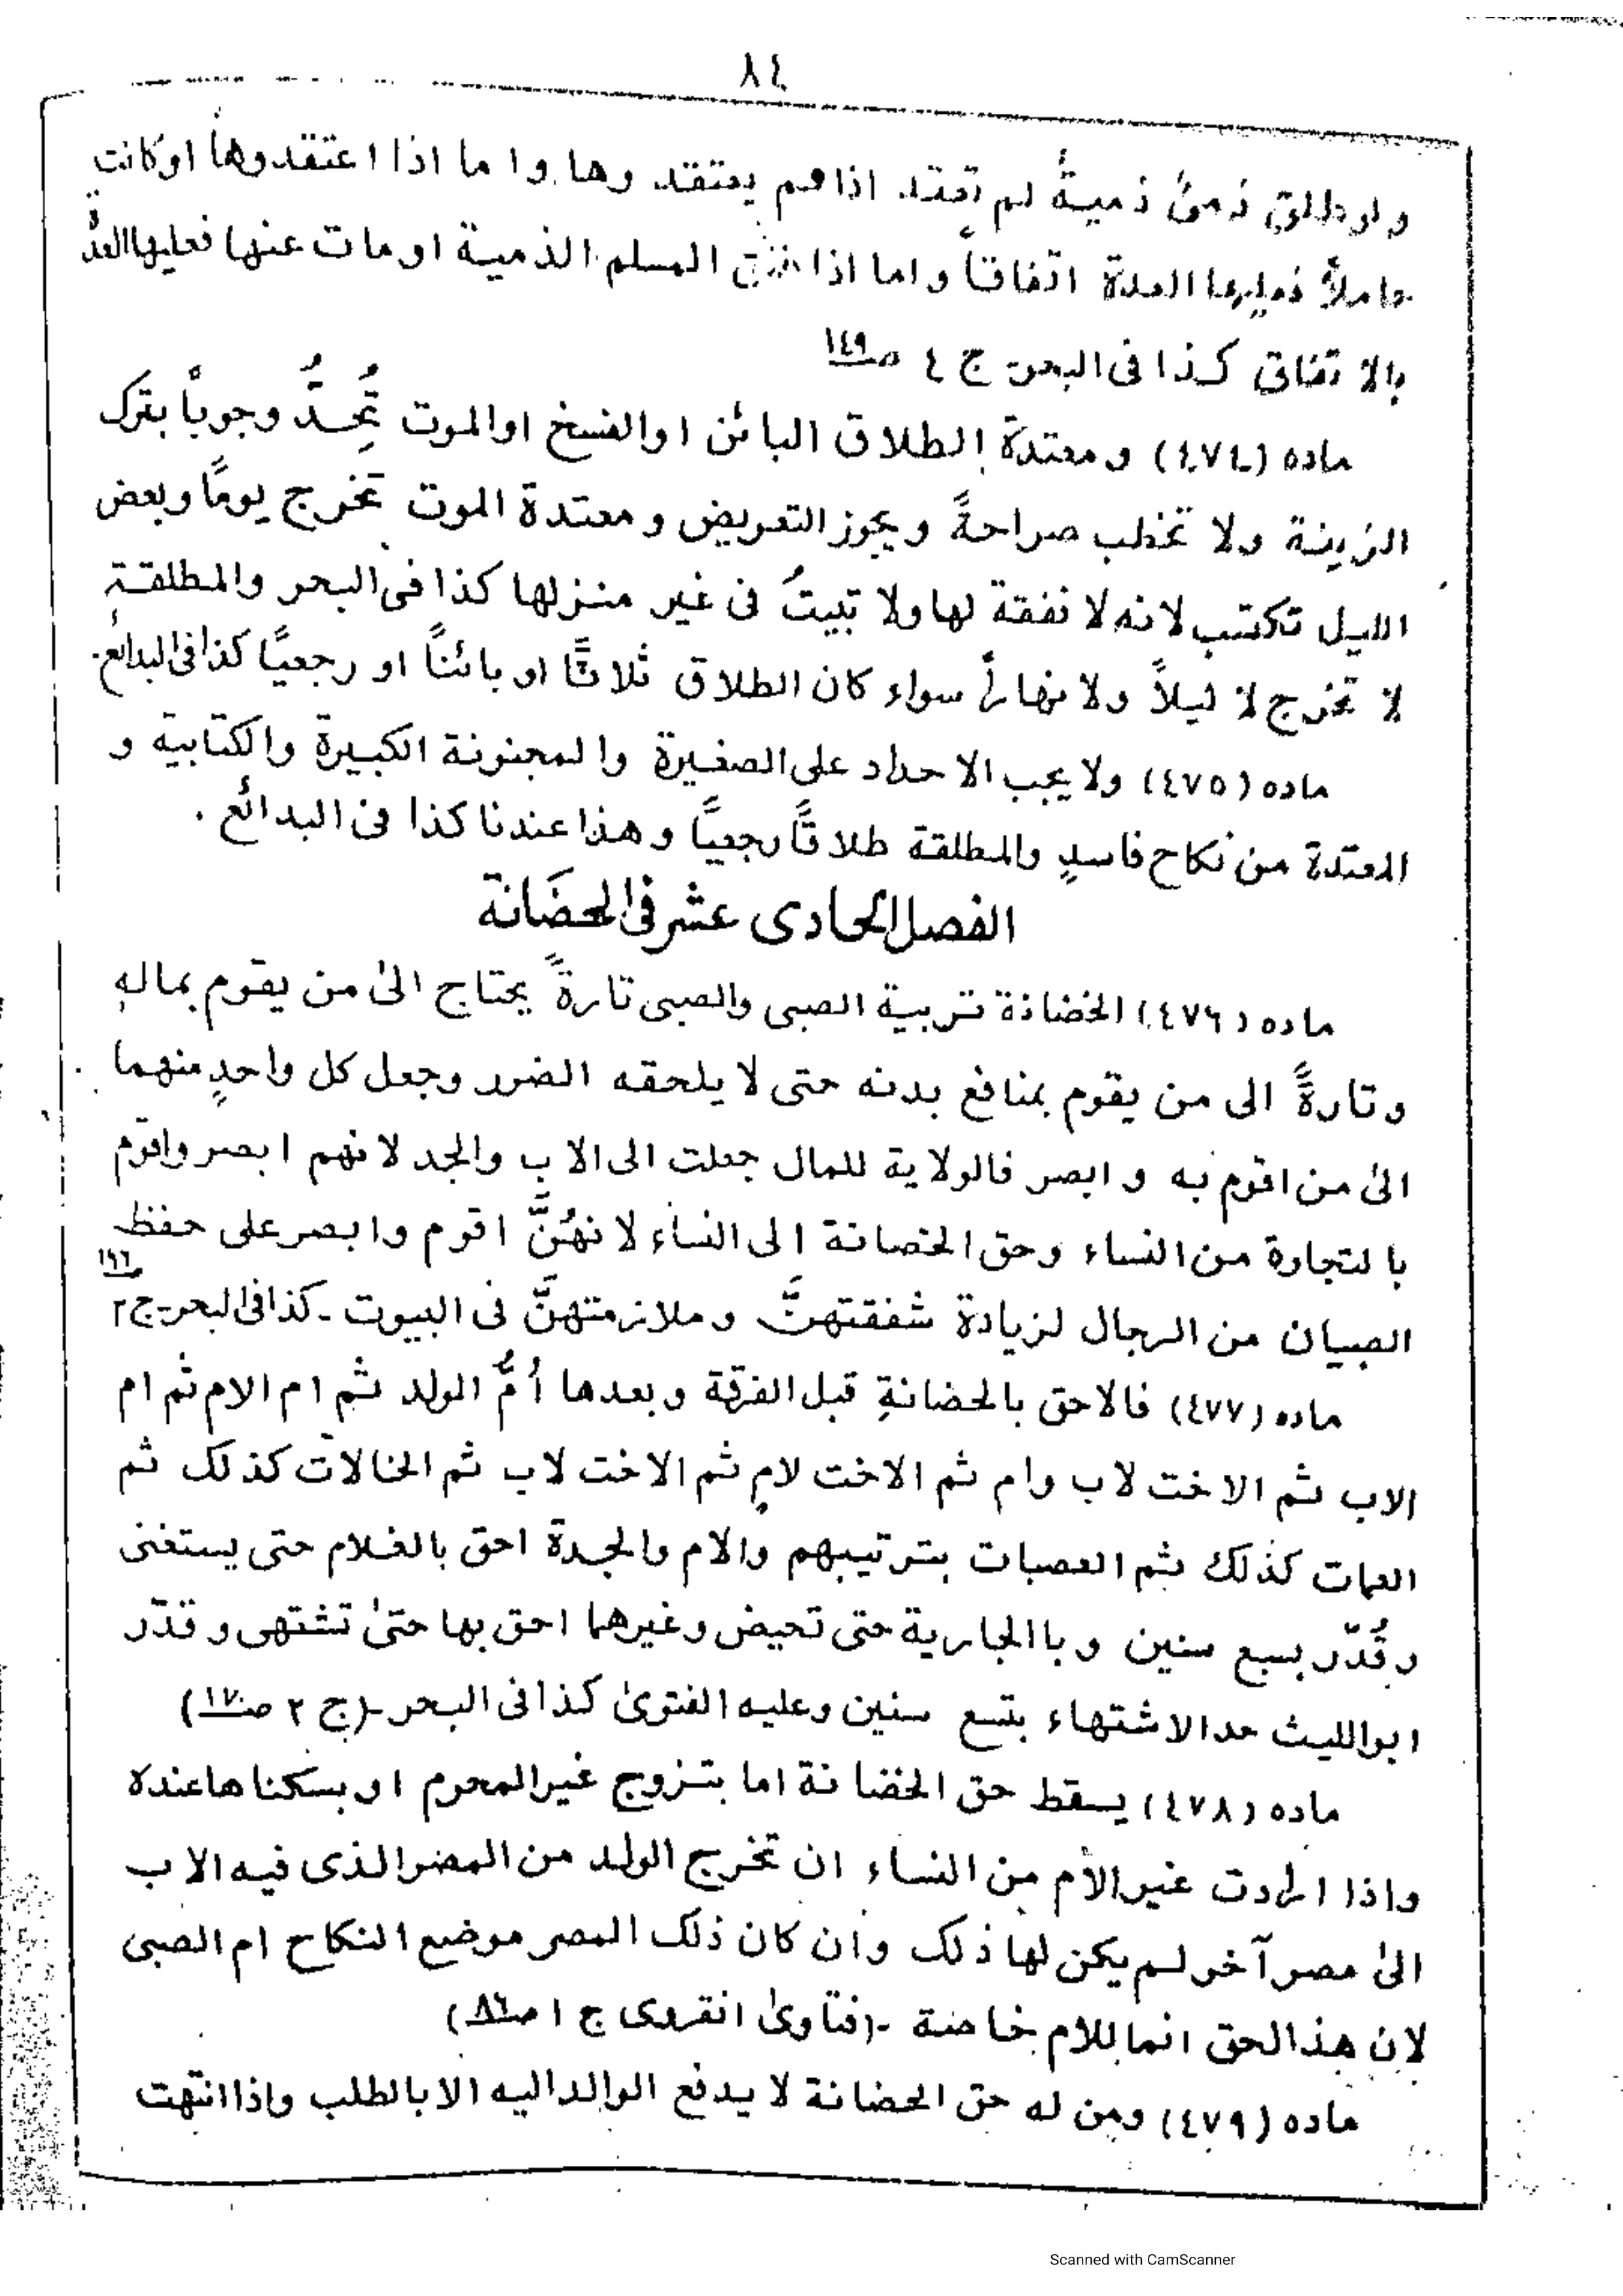 ٨٤
ولو طلق ذمیٌ ذمیةً لم تعتد اذا هم یعتقد وها. وا ما اذا اعتقدوها اوکانت
حاملاً فعلیها العدة اتفاقاً و اما اذا المسلم الذمیة او مات عنها فعلیها العدةُ
بالا تفاق کذا فی البحر ج ٤ صـ١٤٩
ماده (٤٧٤) و معتدة الطلاق البائن اوالفسخ اوالموت تُحِدُّ وجوباً بترک
الزینة ولا تخطب صراحةً ویجوز التعریض و معتدة الموت تخرج یومًا وبعض
اللیل تکتسب لانه لا نفقة لها ولا تبیتُ فی غیر منزلها کذا فی البحر والمطلقة
لا تخرج لا لیلاً ولا نهاراً سواء کان الطلاق ثلاثًا او بائنًا او رجعیًا کذا فی البدائع.
ماده (٤٧٥) ولا یجب الا حداد علی الصغیرة وا لمجنونة الکبیرة والکتابیة و
المعتدة من نکاح فاسدٍ والمطلقة طلاقًا رجعیًا وهذا عندنا کذا فی البدائع .
الفصل الحادی عشر فی الحضَانة
ماده (٤٧٦) الخضانة تربیة الصبی والصبی تارةً یحتاج الیٰ من یقوم بمالهٖ
وتارةً الی من یقوم بمنافع بدنه حتی لا یلحقه الضرر وجعل کل واحدٍ منهما
الیٰ من اقوم به و ابصر فالولایة للمال جعلت الی الاب والجد لانهم ابصر واقوم
با لتجارة من النساء وحق الحضانة الی النساء لانهُنَّ اقوم وابصر علی حفظ
الصبیان من الرجال لزیادة شفقتهنَّ وملازمتهنَّ فی البیوت ـ کذا فی البحر ـ ج ٢
ماده (٤٧٧) فالاحق بالحضانةِ قبل الفرقة وبعدها اُمُّ الولد ثم ام الام ثم ام
الاب ثم الاخت لاب وام ثم الاخت لامٍ ثم الاخت لاب ثم الخالات کذلک ثم
العمات کذلک ثم العصبات بترتیبهم والام والجدة احق بالغلام حتی یستغنی
وقُدّر بسبع سنین وبا الجاریة حتی تحیض وغیرهما احق بها حتیٰ تشتهی وقدّر
ابواللیث حد الاشتهاء بتسع سنین وعلیه الفتویٰ کذا فی البحر ـ (ج ٢ صـ١٧٠)
ماده (٤٧٨) یسقط حق الخضانة اما بتزوج غیر المحرم او بسکناها عنده
واذا ارادت غیر الام من النساء ان تخرج الولد من المصر الذی فیه الاب
الیٰ مصر آخر لم یکن لها ذلک وان کان ذلک المصر موضع النکاح ام الصبی
لان هذالحق انما للام خاصة ـ (فتاویٰ انقروی ج ١ صـ٨٦)
ماده (٤٧٩) ومن له حق الحضانة لا یدفع الوالد الیه الا بالطلب واذا انتهت
Scanned with CamScanner